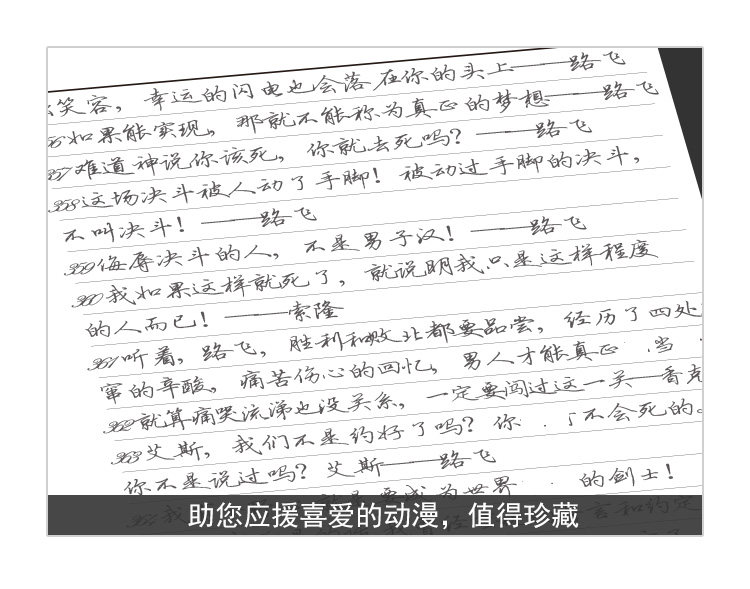 笑容，幸运的闪电也会落在你的头上——路飞
如果能实现，那就不能称为真正的梦想——路飞
357难道神说你该死，你就去死吗？——路飞
358这场决斗被人动了手脚！被动过手脚的决斗，
不叫决斗！——路飞
359侮辱决斗的人，不是男子汉！——路飞
360我如果这样就死了，就说明我只是这样程度
的人而已！——索隆
361听着，路飞，胜利和败北都要品尝，经历了四处
窜的辛酸，痛苦伤心的回忆，男人才能真正 当
362就算痛哭流涕也没关系，一定要闯过这一关——香克
363艾斯，我们不是约好了吗？你 不会死的。
你不是说过吗？艾斯——路飞
我 要成为世界 的剑士！
言和约定
助您应援喜爱的动漫，值得珍藏